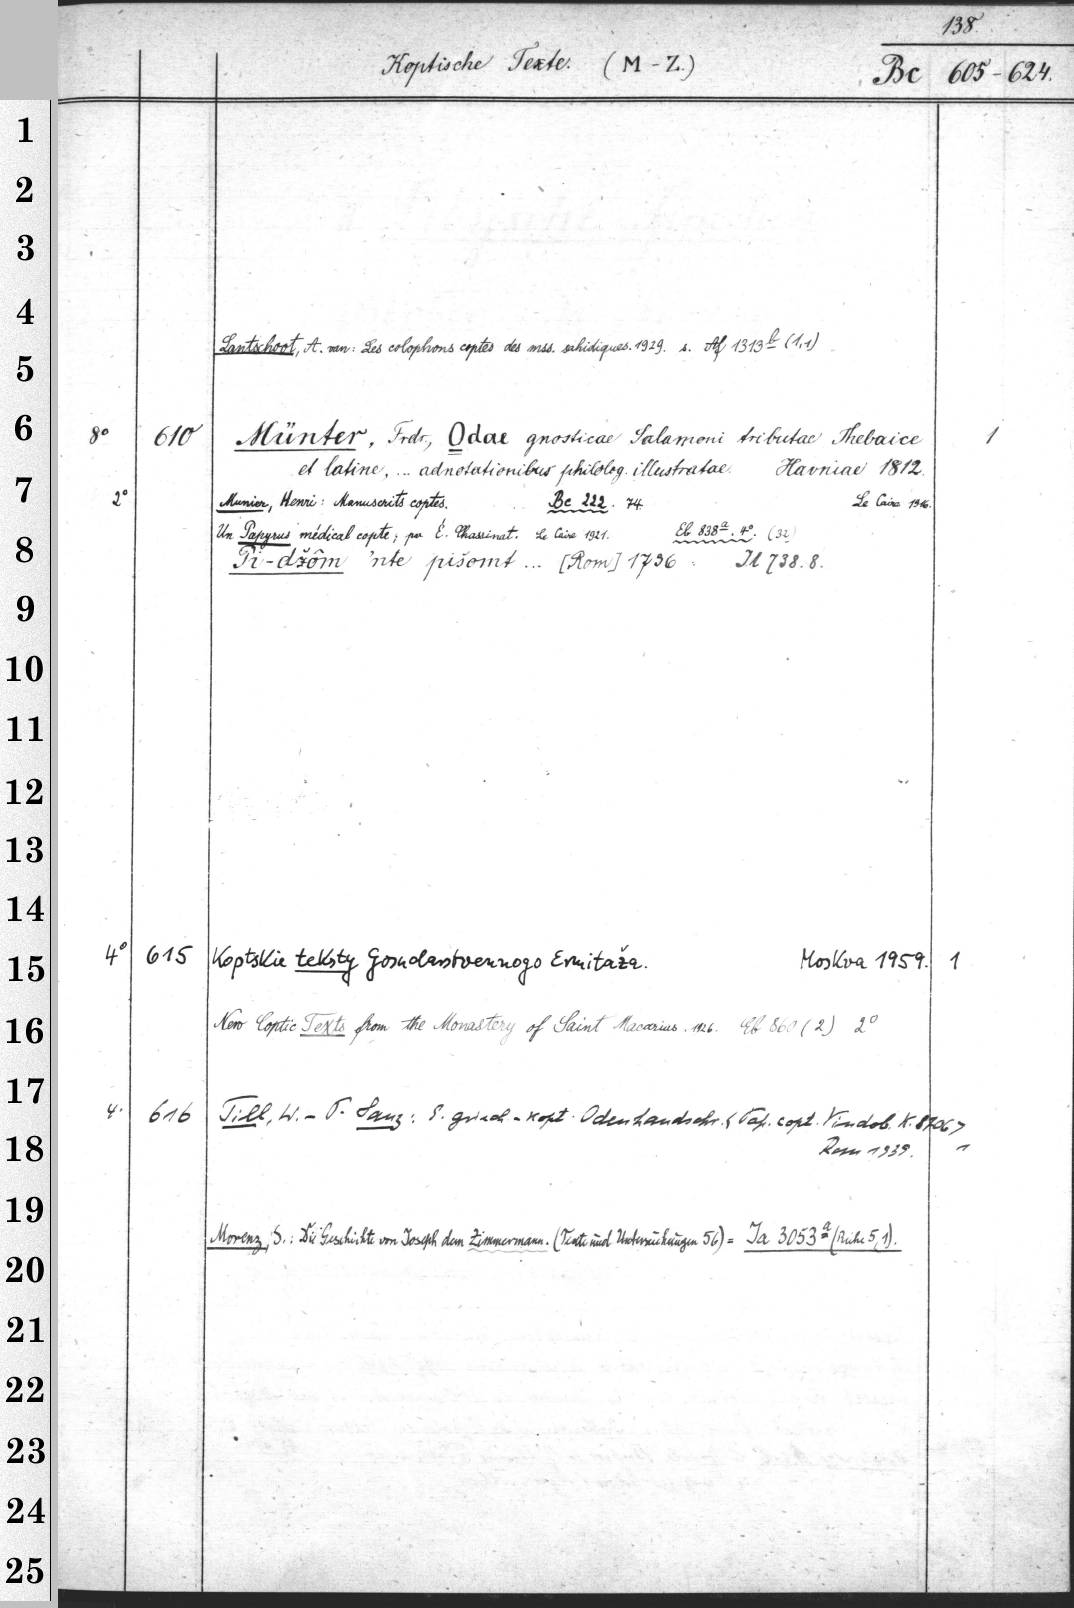 138.
Koptische Texte. (M-Z.)
Bc 605-624.
1
2
3
4
Lantschoot, A. van: Les colophons coptes des mss. sahidiques. 1929. s. Af 1313 b (1,1)
5
6
8° 610 Münter, Frdr., Odae gnosticae Salamoni tributae Thebaice 1
et latine, ... adnotationibus philolog. illustratae. Havniae 1812.
7
2° Munier, Henri: Manuscrits coptes. Bc 222. 74. Le Caire 1916.
Un Papyrus médical copte; par É. Chassinat. Le Caire 1921. Eb 838 a. 4°. (32)
8
Pi-džôm 'nte pišomt ... [Rom] 1736 738. 8.
9
10
11
12
13
14
15
4° 615 Koptskie teksty Gosudarstvennogo Ermitaža. Moskva 1959. 1
16
New Coptic Texts from the Monastery of Saint Macarius. 1926. Eb 860 (2) 2°
17
4. 616 Till, W. - P. Sanz: E. griech-kopt. Odenhandschr. <Pap. copt. Vindob. K. 8706>
18
Rom 1939. 1
19
Morenz, S.: Die Geschichte von Joseph dem Zimmermann. (Texte und Untersuchungen 56) = Ja 3053 a (Reihe 5,1).
20
21
22
23
24
25